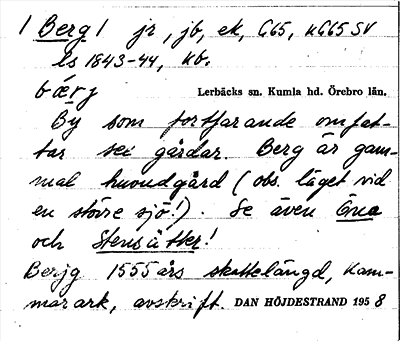 / Berg / jr, jb, ek, G65, KG65 SV
ls 1843-44, kb.
bærj
Lerbäcks sn. Kumla hd. Örebro län.
By som fortfarande omfat-
tar sex gårdar. Berg är gam-
mal huvudgård (obs. läget vid
en större sjö!). Se även Öna
och Stensätter!
Berjg 1555 års skattelängd, Kam-
marark, avskrift. DAN HÖJDESTRAND 1958